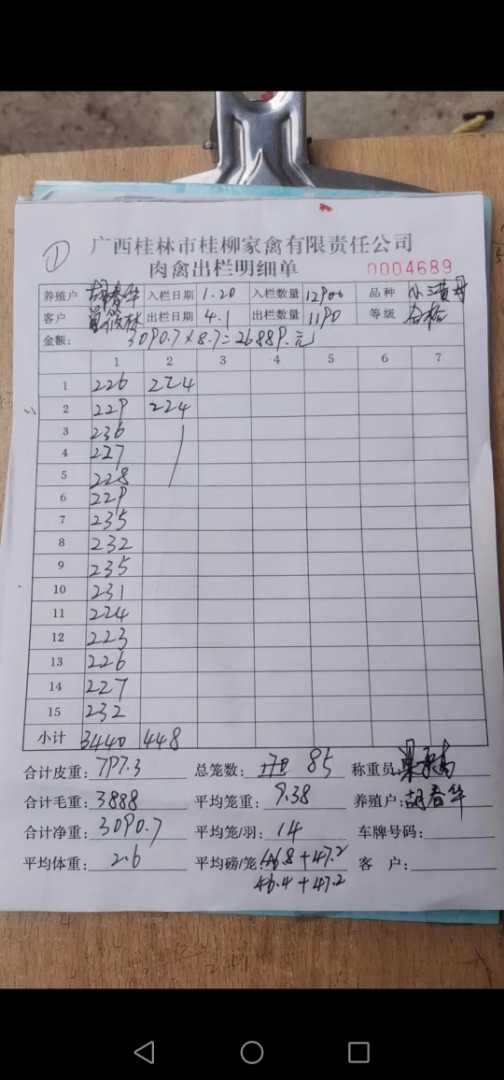 ①
广西桂林市桂柳家禽有限责任公司
肉禽出栏明细单 0004689
养殖户 胡春华 入栏日期 1.20 入栏数量 12900 品种
客户 出栏日期 4.1 出栏数量 1190 等级 合格
金额: 3090.7×8.7=26889.元
1 2 3 4 5 6 7
1 226 224
2 229 224
3 236
4 227
5 228
6 229
7 235
8 232
9 235
10 231
11 224
12 223
13 226
14 227
15 232
小计 3440 448
合计皮重: 797.3 总笼数: 85 称重员:
合计毛重: 3888 平均笼重: 9.38 养殖户: 胡春华
合计净重: 3090.7 平均笼/羽: 14 车牌号码:
平均体重: 2.6 平均磅/笼: 46.8+47.2 客 户:
46.4+47.2